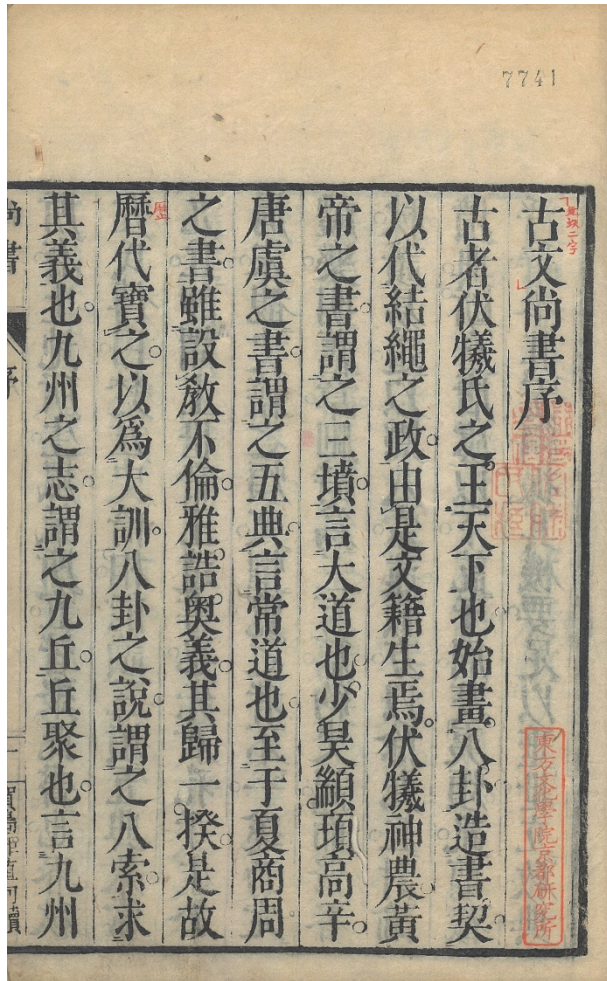 7741
古文尚書序
古者伏犧氏之王天下也始畫八卦造書契
以代結繩之政由是文籍生焉伏犧神農黃
帝之書謂之三墳言大道也少昊顓頊高辛
唐虞之書謂之五典言常道也至于夏商周
之書雖設教不倫雅誥奧義其歸一揆是故
曆代寶之以爲大訓八卦之說謂之八索求
其義也九州之志謂之九丘丘聚也言九州
尚書
序
東方文學院京都研究所